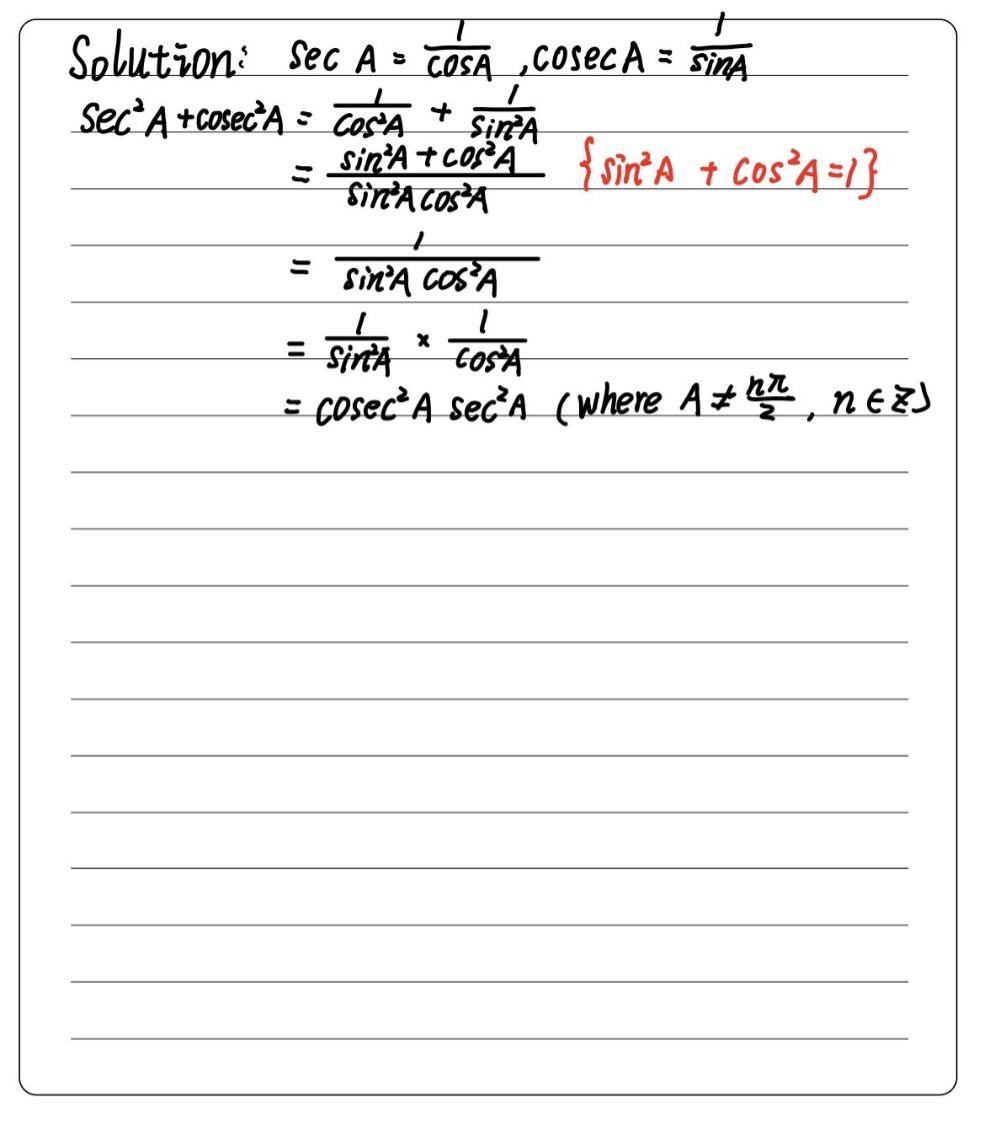 Solution: sec A = 1/cosA , cosec A = 1/sinA
sec²A + cosec²A = 1/cos²A + 1/sin²A
= (sin²A + cos²A)/(sin²A cos²A) {sin²A + cos²A = 1}
= 1/(sin²A cos²A)
= 1/sin²A × 1/cos²A
= cosec²A sec²A (where A ≠ nπ/2 , n ∈ Z)